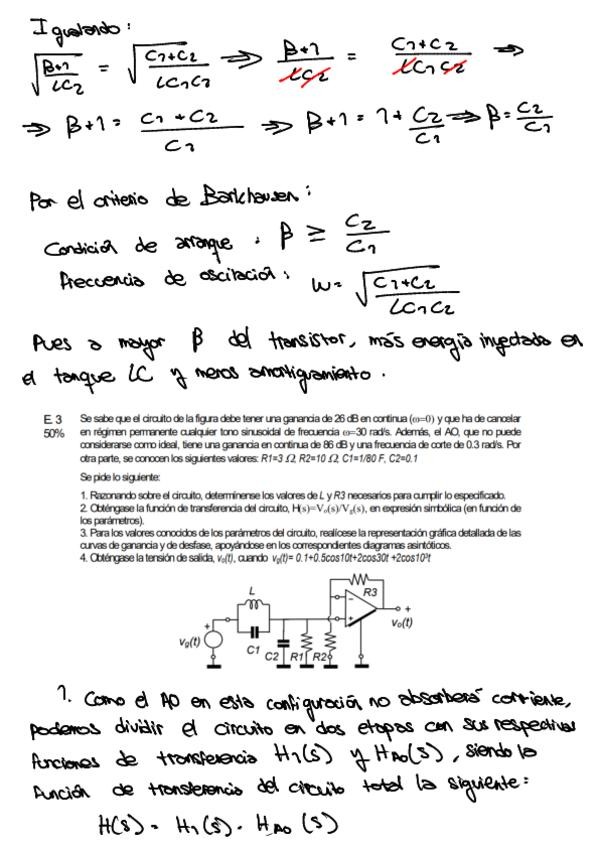 Igualando:
√(β+1 / LC2) = √(C1+C2 / LC1C2) ⇒ β+1 / LC2 = C1+C2 / LC1C2 ⇒
⇒ β+1 = C1+C2 / C1 ⇒ β+1 = 1+ C2/C1 ⇒ β = C2/C1
Por el criterio de Barkhausen:
Condición de arranque : β ≥ C2/C1
Frecuencia de oscilación: ω = √(C1+C2 / LC1C2)
Pues a mayor β del transistor, más energía inyectada en
el tanque LC y menos amortiguamiento.
E 3 Se sabe que el circuito de la figura debe tener una ganancia de 26 dB en continua (ω=0) y que ha de cancelar
50% en régimen permanente cualquier tono sinusoidal de frecuencia ω=30 rad/s. Además, el AO, que no puede
considerarse como ideal, tiene una ganancia en continua de 86 dB y una frecuencia de corte de 0.3 rad/s. Por
otra parte, se conocen los siguientes valores: R1=3 Ω, R2=10 Ω, C1=1/80 F, C2=0.1
Se pide lo siguiente:
1. Razonando sobre el circuito, determínense los valores de L y R3 necesarios para cumplir lo especificado.
2. Obténgase la función de transferencia del circuito, H(s)=Vo(s)/Vg(s), en expresión simbólica (en función de
los parámetros).
3. Para los valores conocidos de los parámetros del circuito, realícese la representación gráfica detallada de las
curvas de ganancia y de desfase, apoyándose en los correspondientes diagramas asintóticos.
4. Obténgase la tensión de salida, vo(t), cuando vg(t)= 0.1+0.5cos10t+2cos30t +2cos10³t
L
R3
vo(t)
vg(t)
C1
C2 R1 R2
1. Como el AO en esta configuración no absorberá corriente,
podemos dividir el circuito en dos etapas con sus respectivas
funciones de transferencia H1(s) y HAO(s), siendo la
función de transferencia del circuito total la siguiente:
H(s) = H1(s) · HAO (s)